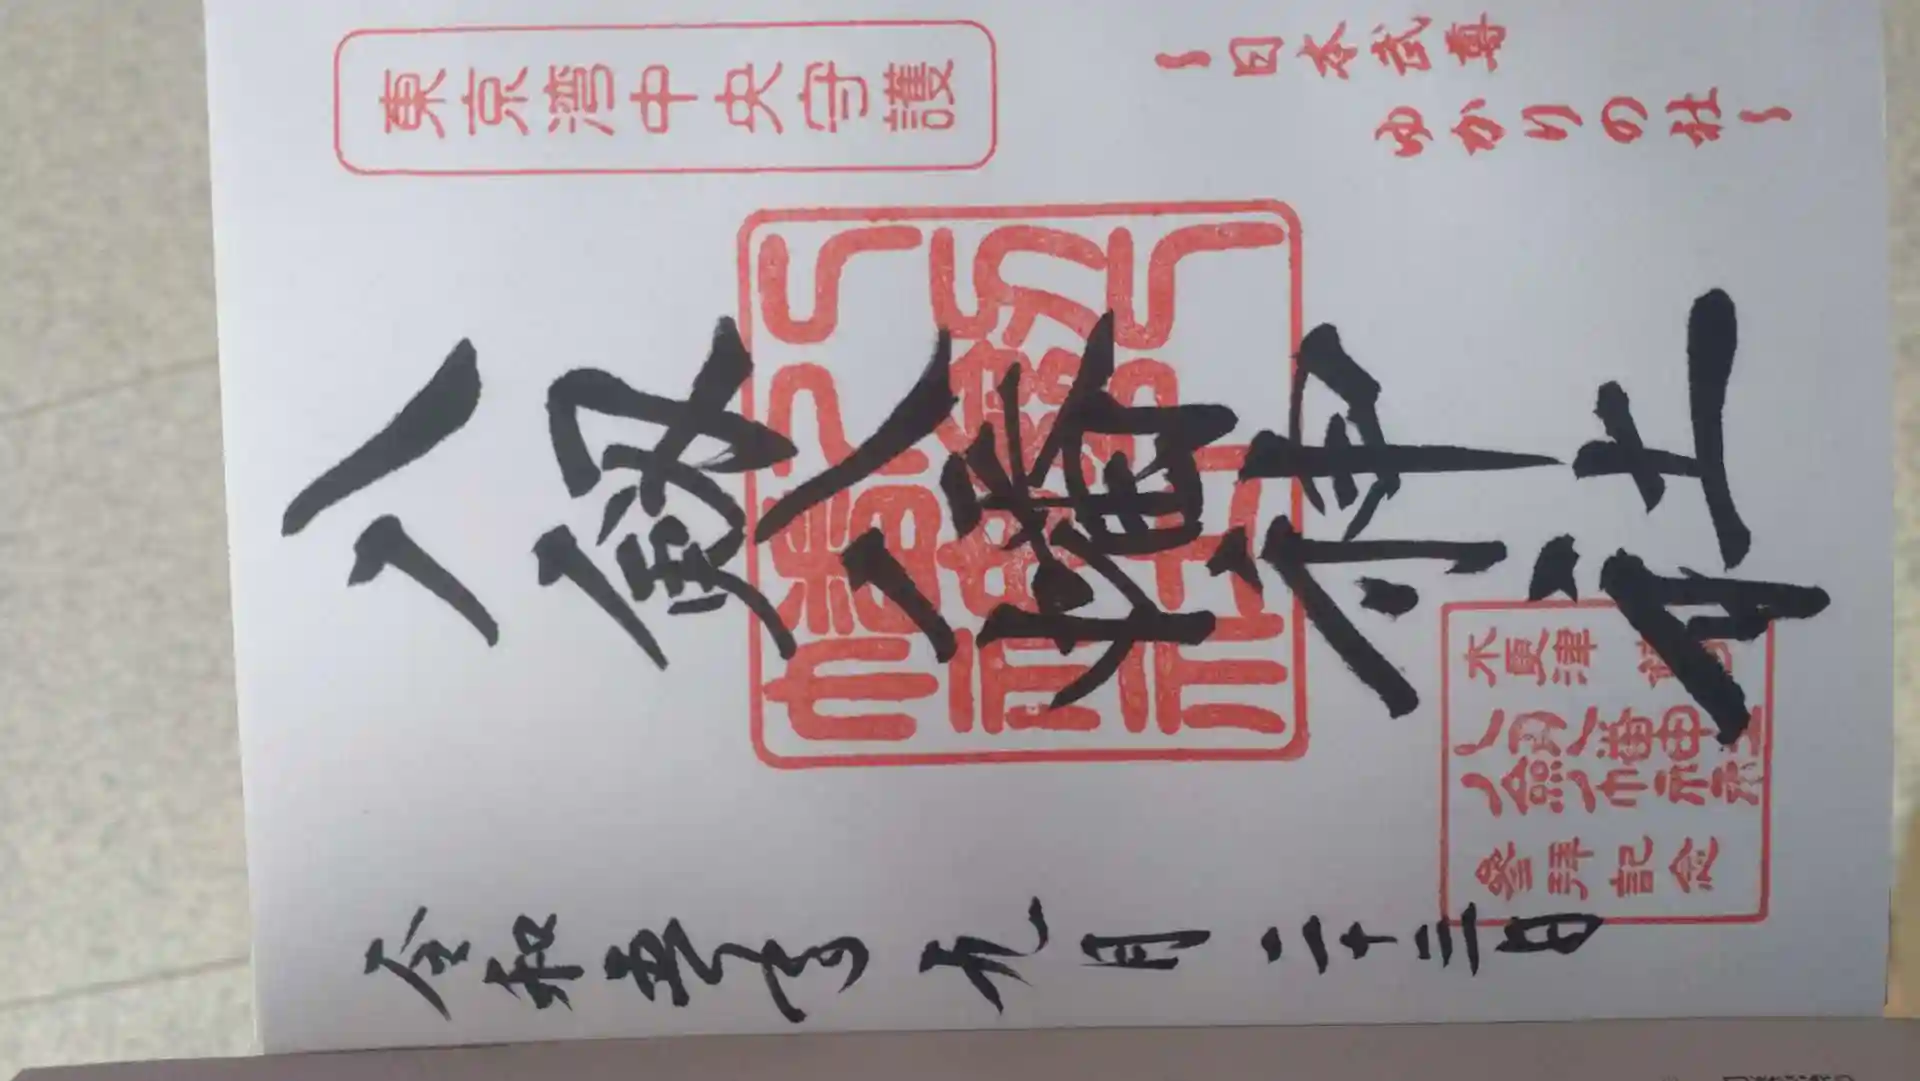 東京湾中央守護
〜日本武尊
ゆかりの社〜
八剱八幡神社
木更津
八剱八幡神社
参拝記念
令和五年九月二十三日